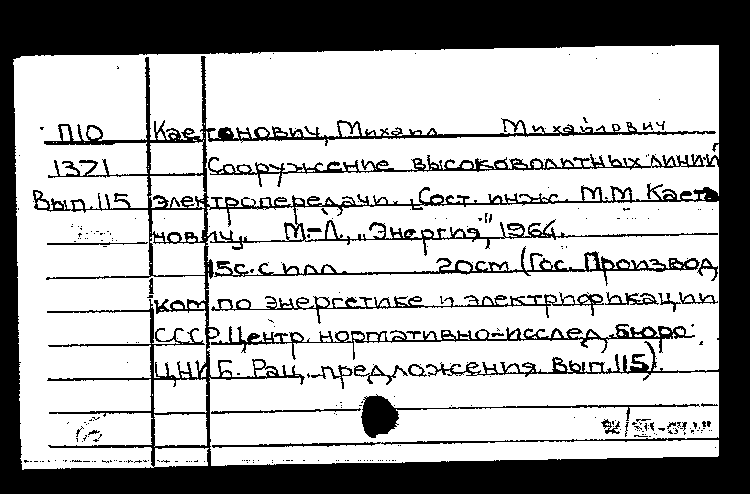 П10 Каетанович, Михаил Михайлович
1371 Сооружение высоковольтных линий
Вып.115 электропередачи. „Сост. инж. М.М. Каета
нович„. М.-Л., „Энергия", 1964.
15с. с илл. 20см (Гос. Производ.
ком. по энергетике и электрификации
СССР. Центр. нормативно-исслед. бюро
ЦНИБ. Рац. предложения. Вып.115).